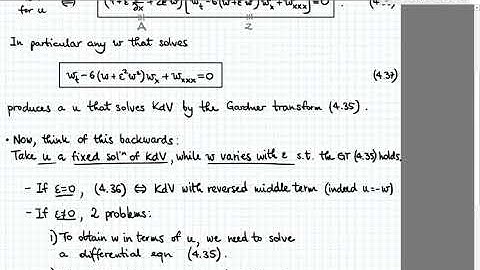 for u ⇔ (1+ε ∂/∂x +2ε²w)[w_t-6(w+ε²w²)w_x+w_xxx]=0
A 2
In particular any w that solves
w_t-6(w+ε²w²)w_x+w_xxx=0 (4.37)
produces a u that solves KdV by the Gardner transform (4.35).
• Now, think of this backwards:
Take u a fixed solⁿ of KdV, while w varies with ε s.t. the GT (4.35) holds.
- If ε=0, (4.36) ⇔ KdV with reversed middle term (indeed u=-w)
- If ε≠0, 2 problems:
1) To obtain w in terms of u, we need to solve
a differential eqn (4.35).